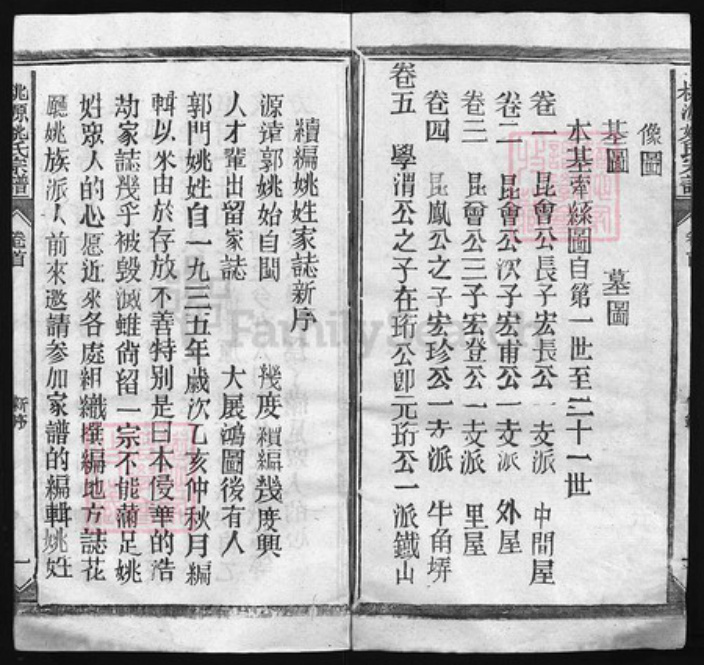 像圖
基圖　墓圖
本基牽絲圖自第一世至三十一世
卷一　昆會公長子宏長公一支派　中間屋
卷二　昆會公次子宏甫公一支派　外屋
卷三　昆會公三子宏登公一支派　里屋
卷四　昆鳳公之子宏珍公一支派　牛角塝
卷五　學渭公之子在珩公卽元珩公一派鐵山
續編姚姓家誌新序
源遠郭姚始自閩　幾度續編幾度興
人才輩出留家誌　大展鴻圖後有人
郭門姚姓自一九三五年歲次乙亥仲秋月編
輯以來由於存放不善特別是日本侵華的浩
劫家誌幾乎被毀滅雖尚留一宗不能滿足姚
姓眾人的心愿近來各庭組織撰編地方誌花
廳姚族派人前來邀請參加家譜的編輯姚姓
桃源姚氏宗譜
卷首
新序
一
FamilySearch